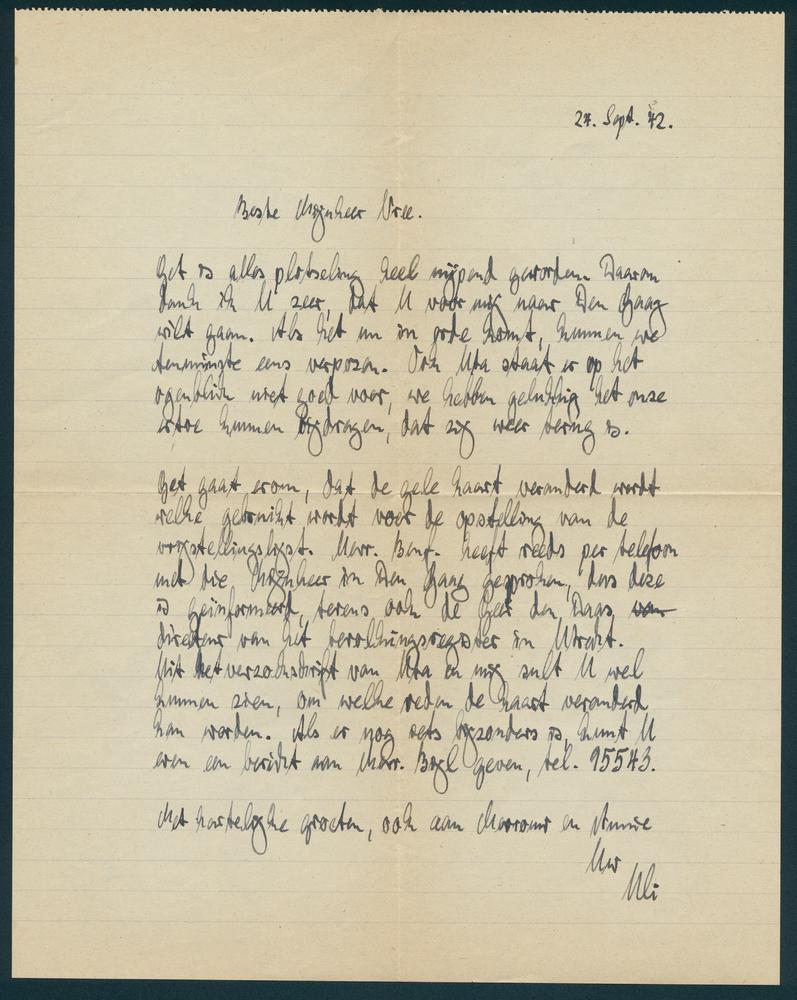 24. Sept. 42.
Beste Mijnheer Vree.
Het is alles plotseling heel nijpend geworden. Daarom
dank ik U zeer, dat U voor mij naar Den Haag
wilt gaan. Als het nu in orde komt, kunnen we
tenminste eens verpozen. Ook Uta staat er op het
ogenblik niet goed voor, we hebben gelukkig het onze
ertoe kunnen bijdragen, dat zij weer terug is.
Het gaat erom, dat de gele kaart veranderd wordt
welke gebruikt wordt voor de opstelling van de
vrijstellingslijst. Mevr. heeft reeds per telefoon
met die Mijnheer in Den Haag gesproken, dus deze
is geïnformeerd, tevens ook de Heer den Daas van
directeur van het bevolkingsregister in Utrecht.
Uit het verzoekschrift van Uta en mij zult U wel
kunnen zien, om welke reden de kaart veranderd
kan worden. Als er nog iets bijzonders is, kunt U
even een bericht aan Mevr. geven, tel. 95543.
Met hartelijke groeten, ook aan Mevrouw en
Uw
Uli